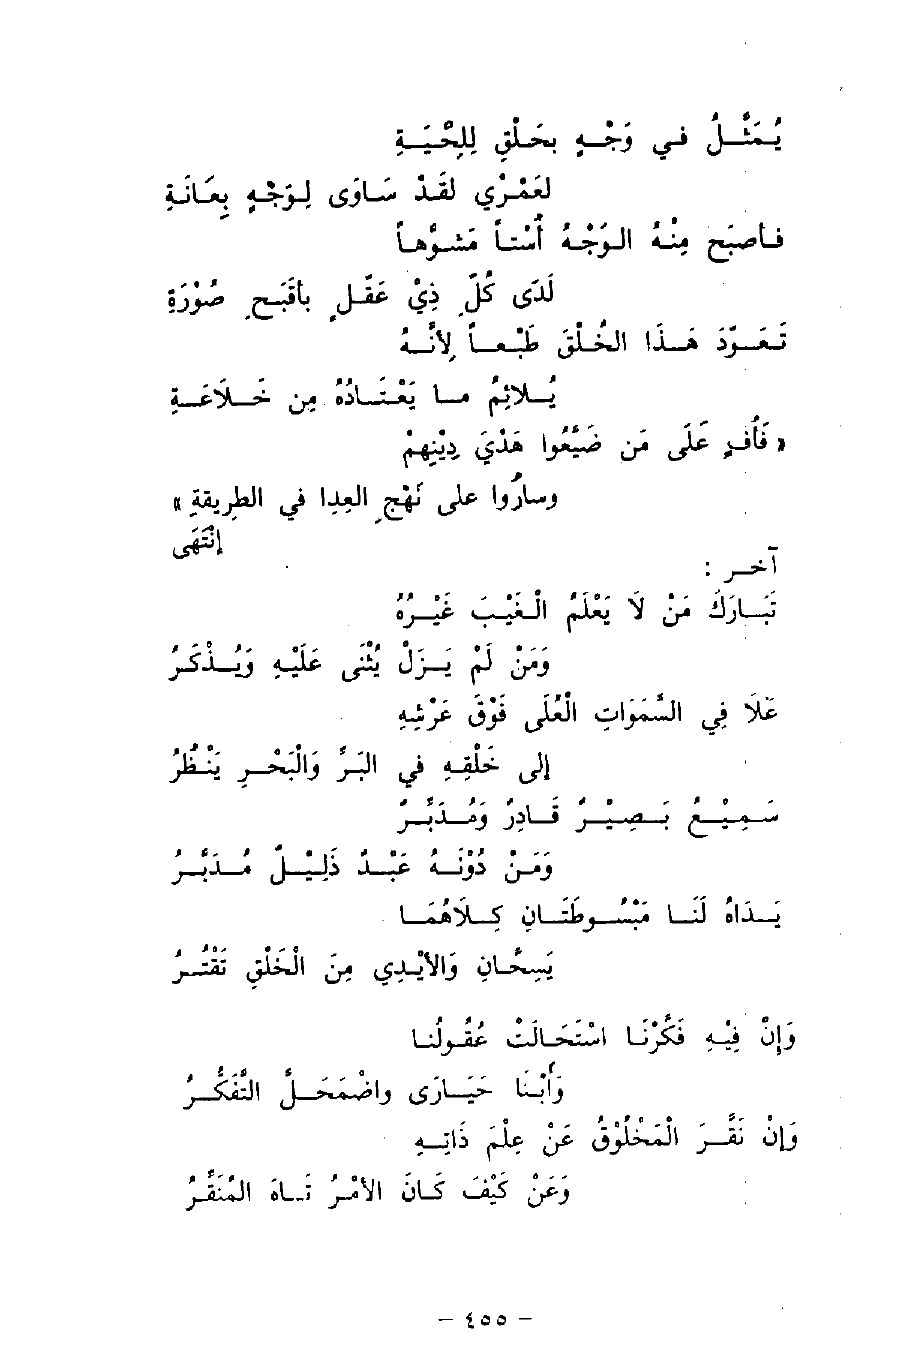 يُمَثَّلُ في وَجْهٍ بِحَلْقٍ لِلِحْيَةٍ
لَعَمْرِي لَقَدْ سَاوَى لِوَجْهٍ بِعَانَةِ
فَاصبَحَ مِنْهُ الوَجْهُ أُسْتاً مُشَوَّهاً
لَدَى كُلِّ ذِيْ عَقْلٍ بِاقْبَحِ صُوْرَةِ
تَعَوَّدَ هَذَا الحُلْقَ طَبْعاً لِأَنَّهُ
يُلائِمُ مَا يَعْتَادُهُ مِن خَلَاعَةِ
« فَأُفٍ عَلَى مَن ضَيَّعُوا هَدْيَ دِيْنِهِمْ
وسارُوا على نَهْجِ العِدا في الطريقةِ »
إِنْتَهَى
آخر :
تَبَارَكَ مَنْ لاَ يَعْلَمُ الْغَيْبَ غَيْرُهُ
وَمَنْ لَمْ يَزَلْ يُثْنَى عَلَيْهِ وَيُذْكَرُ
عَلَا في السَّمَوَاتِ الْعُلَى فَوْقَ عَرْشِهِ
إلى خَلْقِهِ في البَرِّ وَالْبَحْرِ يَنْظُرُ
سَمِيْعٌ بَصِيْرٌ قَادِرٌ وَمُدَبِّرٌ
وَمَنْ دُوْنَهُ عَبْدٌ ذَلِيْلٌ مُدَبَّرُ
يَدَاهُ لَنَا مَبْسُوطَتَانِ كِلَاهُمَا
يَسِحَّانِ وَالأَيْدِي مِنَ الْخَلْقِ تَقْتُرُ
وَإِنْ فِيْهِ فَكَّرْنَا اسْتَحَالَتْ عُقُولُنَا
وَأُبْنَا حَيَارَى واضْمَحَلَّ التَّفَكُّرُ
وَإِنْ نَقَّرَ الْمَخْلُوْقُ عَنْ عِلْمِ ذَاتِهِ
وَعَنْ كَيْفَ كَانَ الأَمْرُ تَاهَ المُنَقِّرُ
– ٤٥٥ –